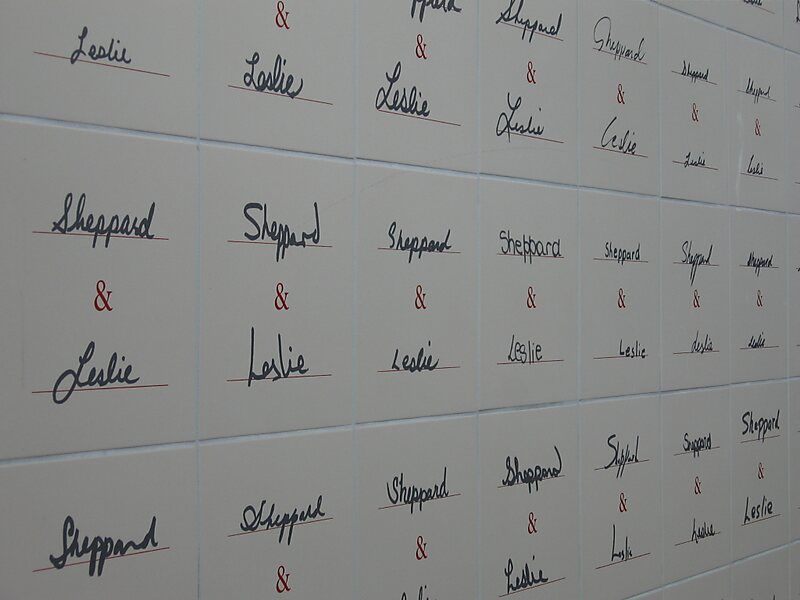 Leslie
&
Leslie
&
Leslie
Sheppard
&
Leslie
Sheppard
&
Leslie
Sheppard
&
Leslie
Sheppard
&
Leslie
Sheppard
&
Leslie
Sheppard
&
Leslie
Sheppard
&
Leslie
Sheppard
&
Leslie
Sheppard
&
Leslie
Sheppard
&
Leslie
Sheppard
&
Leslie
Sheppard
Sheppard
&
Sheppard
&
Sheppard
&
Leslie
Sheppard
&
Leslie
Sheppard
&
Leslie
Sheppard
&
Leslie